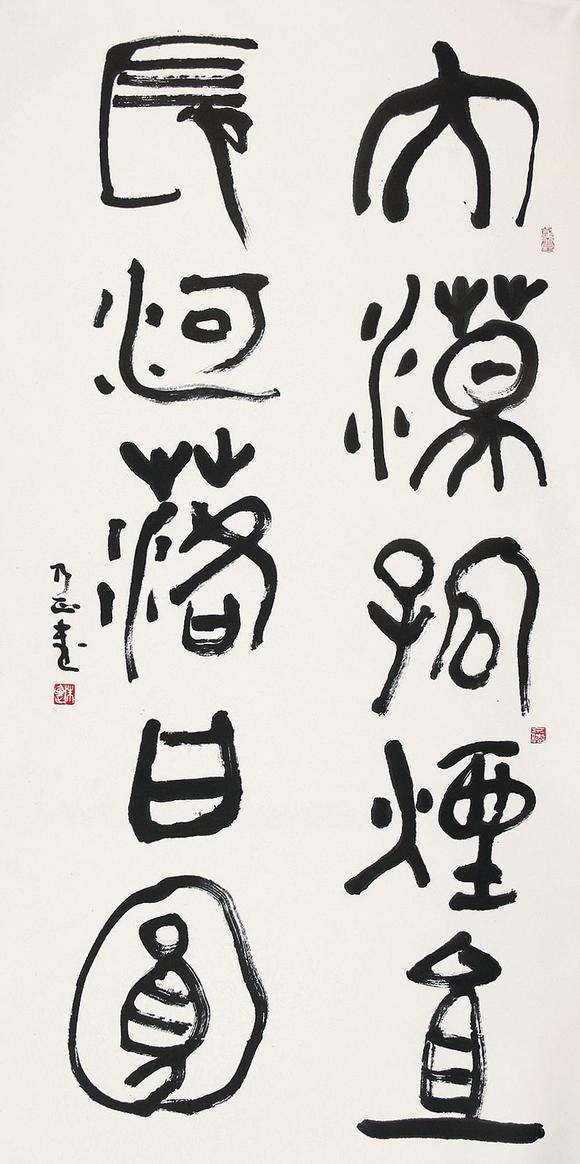 大漠孤煙直
長河落日圓
乃正書